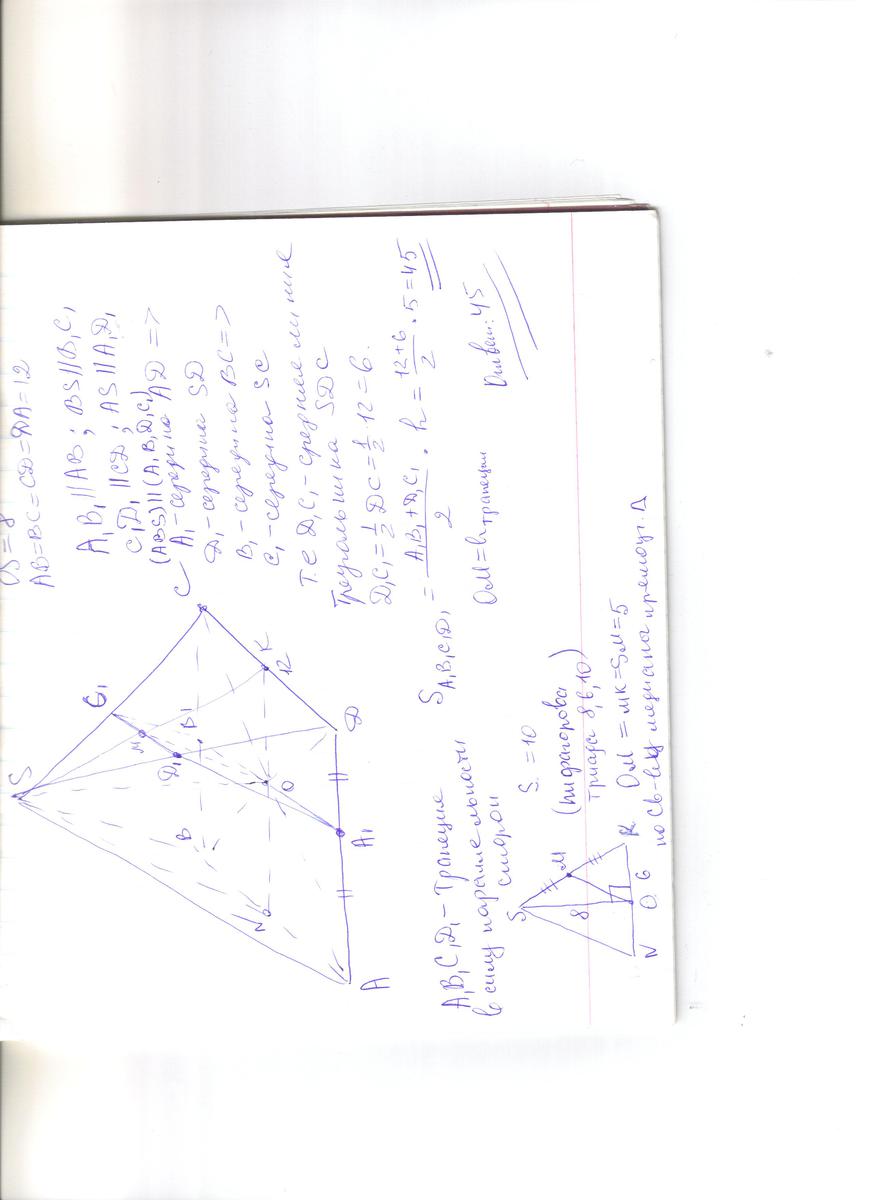 OS = 8
AB=BC=CD=DA=12
A₁B₁ || AB ; BS || B₁C₁
C₁D₁ || CD ; AS || A₁D₁
(ABS) || (A₁B₁D₁C₁)
A₁ - середина AD =>
D₁ - середина SD
B₁ - середина BC =>
C₁ - середина SC
Т.е D₁C₁ - средняя линия
треугольника SDC
D₁C₁ = 1/2 DC = 1/2 · 12 = 6.
S A₁B₁C₁D₁ = (A₁B₁ + D₁C₁)/2 · h = (12+6)/2 · 5 = 45
OM = h трапеции
Ответ: 45
S
C₁
M
D₁
B₁
B
C
K
12
N
O
D
A₁
A
A₁B₁C₁D₁ - Трапеция
в силу параллельности
сторон
S
M
8
N
O
6
K
S = 10
(пифагорова
триада 8,6,10)
OM = MK = SM = 5
по св-ву медианы прямоуг. Δ